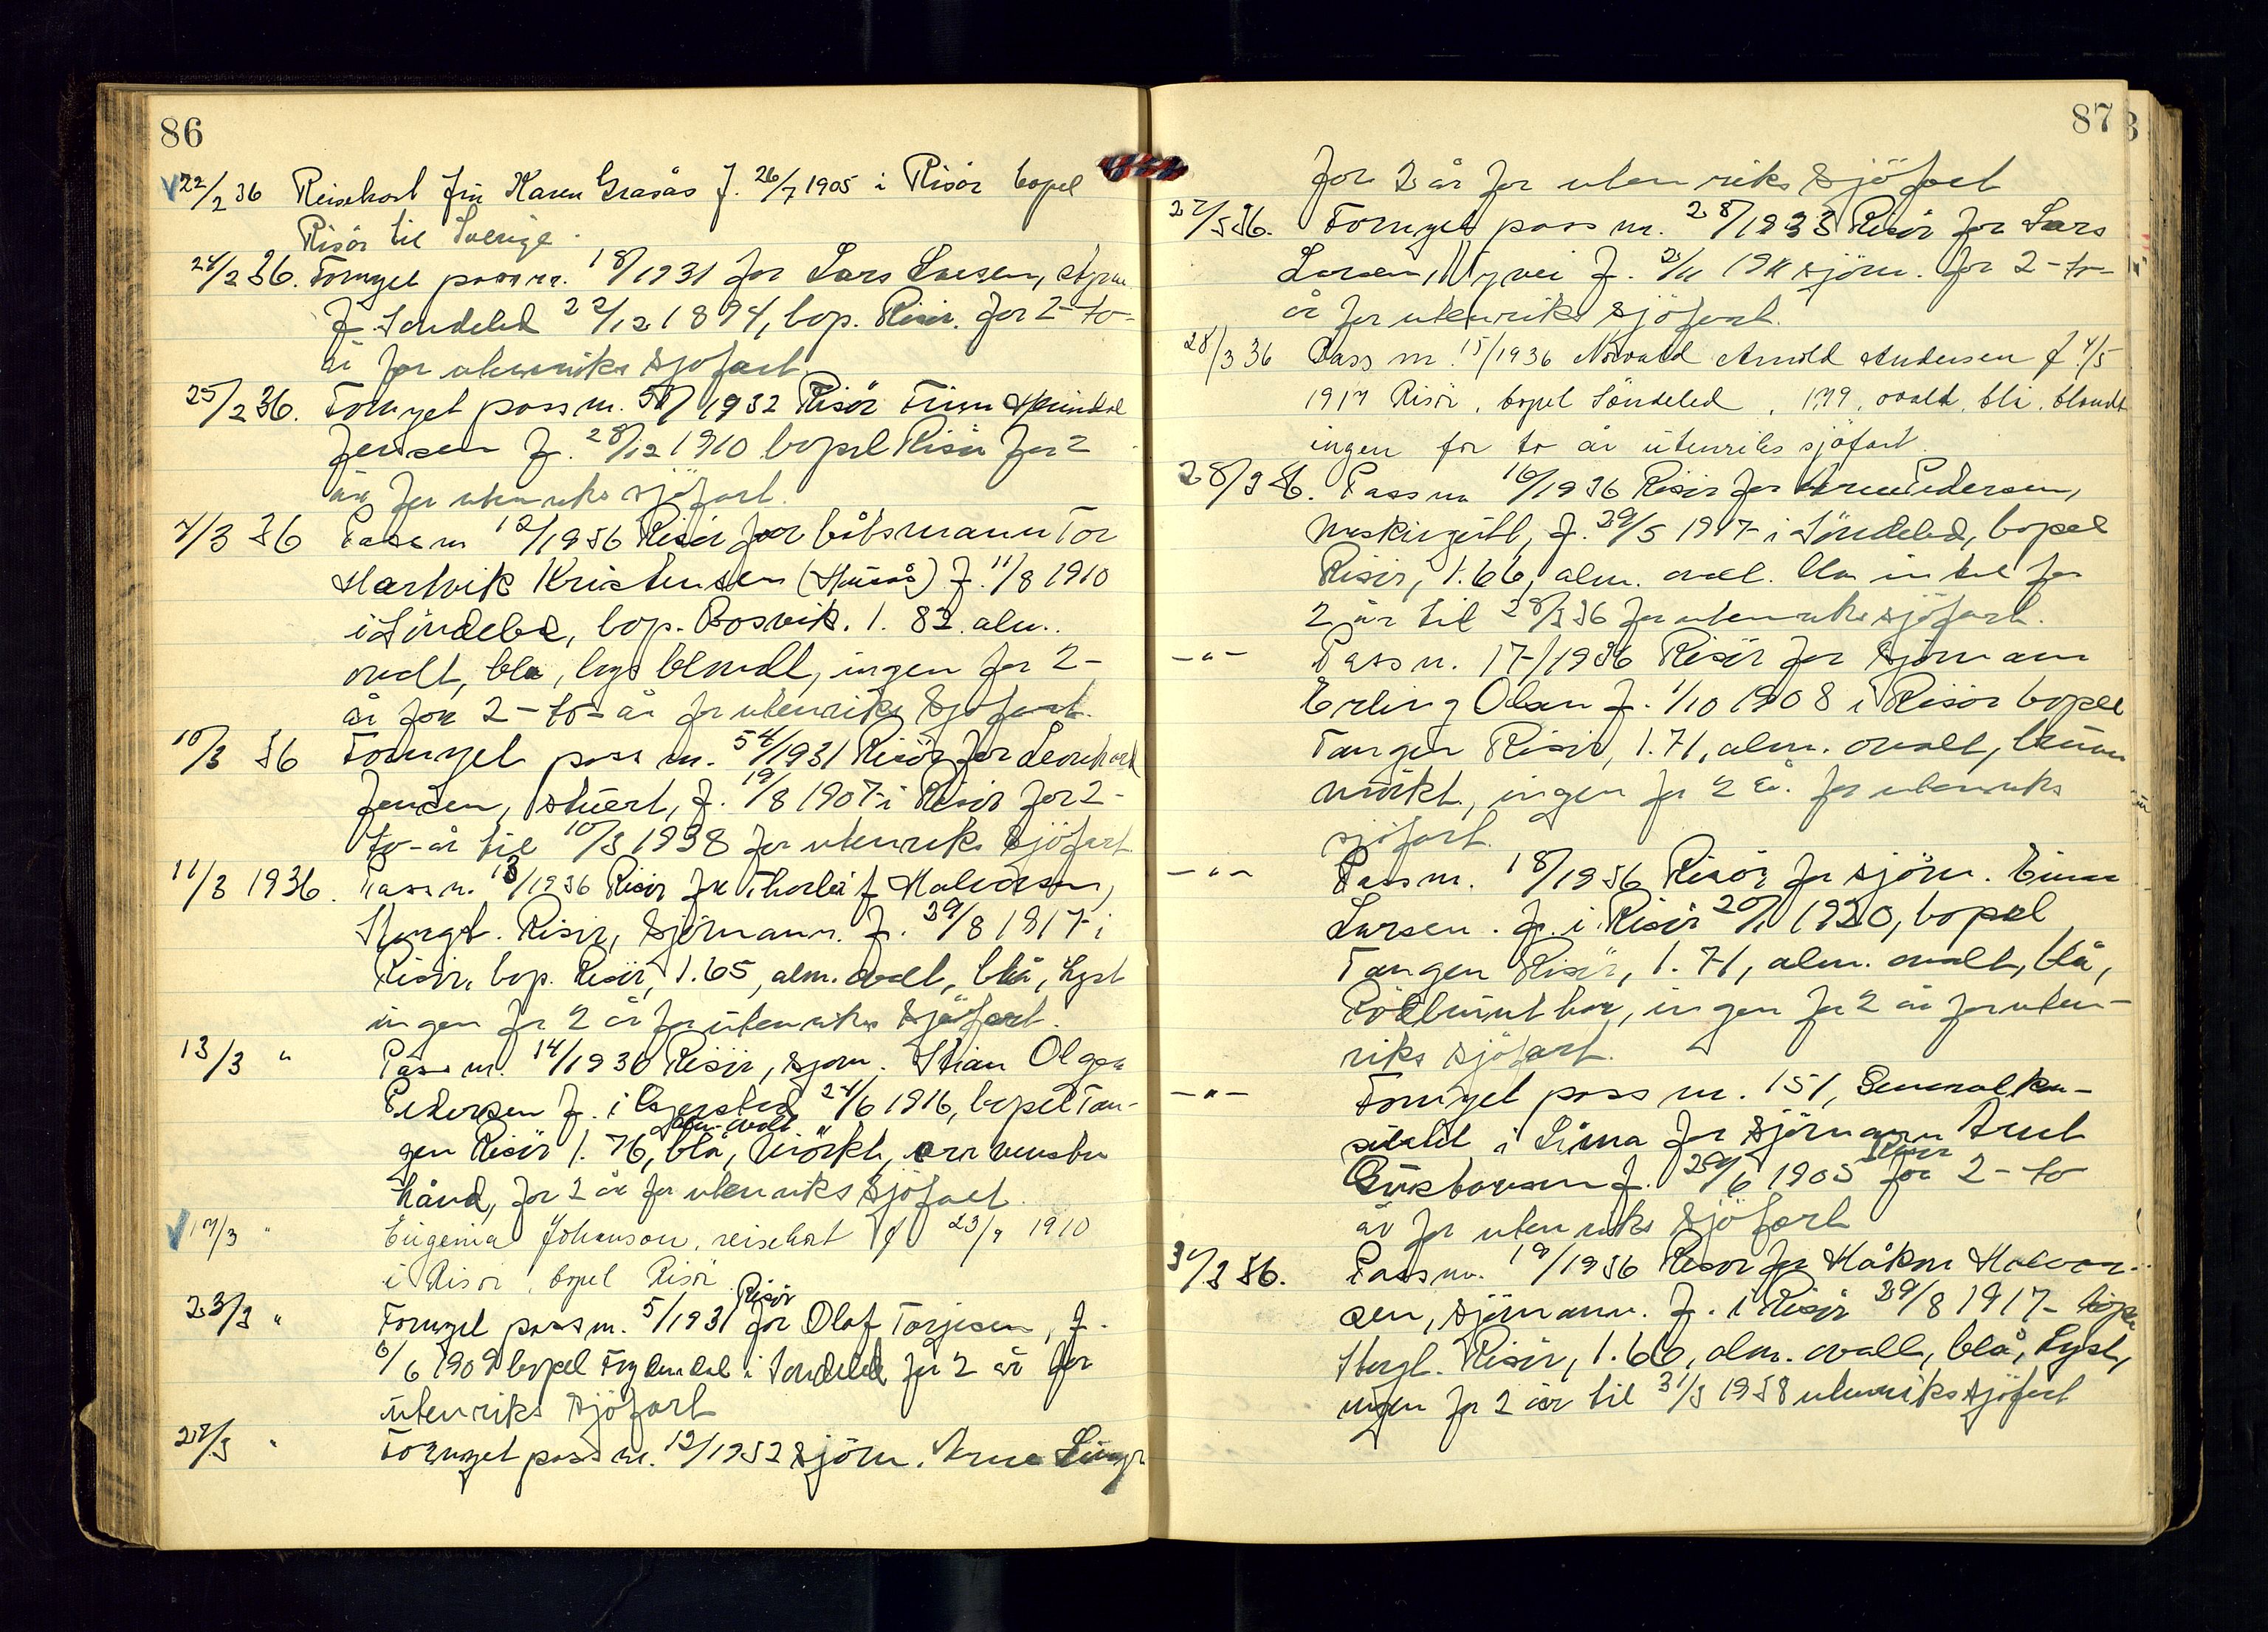 86
22/2 36 Reisekort fru Karen Grasås f. 26/7 1905 i Risör bopel
Risör til Sverige.
24/2 36. Fornyet pass nr. 18/1931 for Lars Larsen, styrm
f. Söndeled 22/12 1894, bop. Risör. for 2-to-
år for utenriks sjöfart.
25/2 36. Fornyet pass nr. /1932 Risör Finn
Jensen f. 28/12 1910 bopel Risör for 2
år for utenriks sjöfart.
7/3 36 Pass nr 12/1936 Risör for båtsmann Tor
Hartvik Kristensen () f. 11/8 1910
i Söndeled, bop. Bosvik. 1. 82. alm.
ovalt, blå, lys blondt, ingen for 2-
år for 2-to-år for utenriks sjöfart.
10/3 36 Fornyet pass nr. 54/1931 Risör for Leonhard
Jensen, stuert, f. 19/8 1907 i Risör for 2-
to-år til 10/3 1938 for utenriks sjöfart
11/3 1936. Pass nr. 13/1936 Risör for Thorleif Halvorsen,
Risör, sjömann. f. 29/8 1917 i
Risör, bop. Risör, 1.65, alm. ovalt, blå, lyst
ingen for 2 år for utenriks sjöfart.
13/3 " Pass nr. 14/1936 Risör, sjöm. Stian Olgar
Pedersen f. i 24/6 1916, bopel Tan-
alm. ovalt
gen Risör 1.76, blå, mörkt, arr venstre
hånd, for 2 år for utenriks sjöfart.
17/3 " Eugenia Johanson, reisekort f 23/9 1910
i Risör, bopel Risör
Risör
23/3 " Fornyet pass nr. 5/1931 for Olaf Torjesen, f.
6/6 1909 bopel i Söndeled for 2 år for
utenriks sjöfart
27/3 " Fornyet pass nr. 12/1932 sjöm. Arne
87
for 2 år for utenriks sjöfart
27/3 36. Fornyet pass nr. 28/1933 Risör for Lars
Larsen, Nyvei f. 23/11 1911 sjöm. for 2-to-
år for utenriks sjöfart.
28/3 36 Pass nr. 15/1936 Norvald Arnold Andersen f 4/5
1917 Risör, bopel Söndeled, 1.79, ovalt, blå, blondt
ingen for to år utenriks sjöfart.
28/3 36. Pass nr 16/1936 Risör for Arne Pedersen,
maskingutt, f. 29/5 1917 i Söndeled, bopel
Risör, 1.66, alm. oval. for
2 år til 28/3 36 for utenriks sjöfart.
-"- Pass nr. 17/1936 Risör for sjömann
Erling Olsen f. 1/10 1908 i Risör bopel
Tangen Risör, 1.71, alm. ovalt, brune
mörkt, ingen for 2 år for utenriks
sjöfart.
-"- Pass nr. 18/1936 Risör for sjöm. Einar
Larsen. f. i Risör 20/1 1920, bopel
Tangen Risör, 1.71, alm. ovalt, blå,
rödbrunt hår, ingen for 2 år for uten-
riks sjöfart.
-"- Fornyet pass nr. 151, Generalkon-
sulatet i Lima for sjömann Arnt
Risör
Gustavsen f. 29/6 1905 for 2-to
år for utenriks sjöfart
31/3 36. Pass nr. 19/1936 Risör for Håkon Halvor-
sen, sjömann. f. i Risör 29/8 1917 bopel
Risör, 1.66, alm. ovalt, blå, lyst,
ingen for 2 år til 31/3 1938 utenriks sjöfart